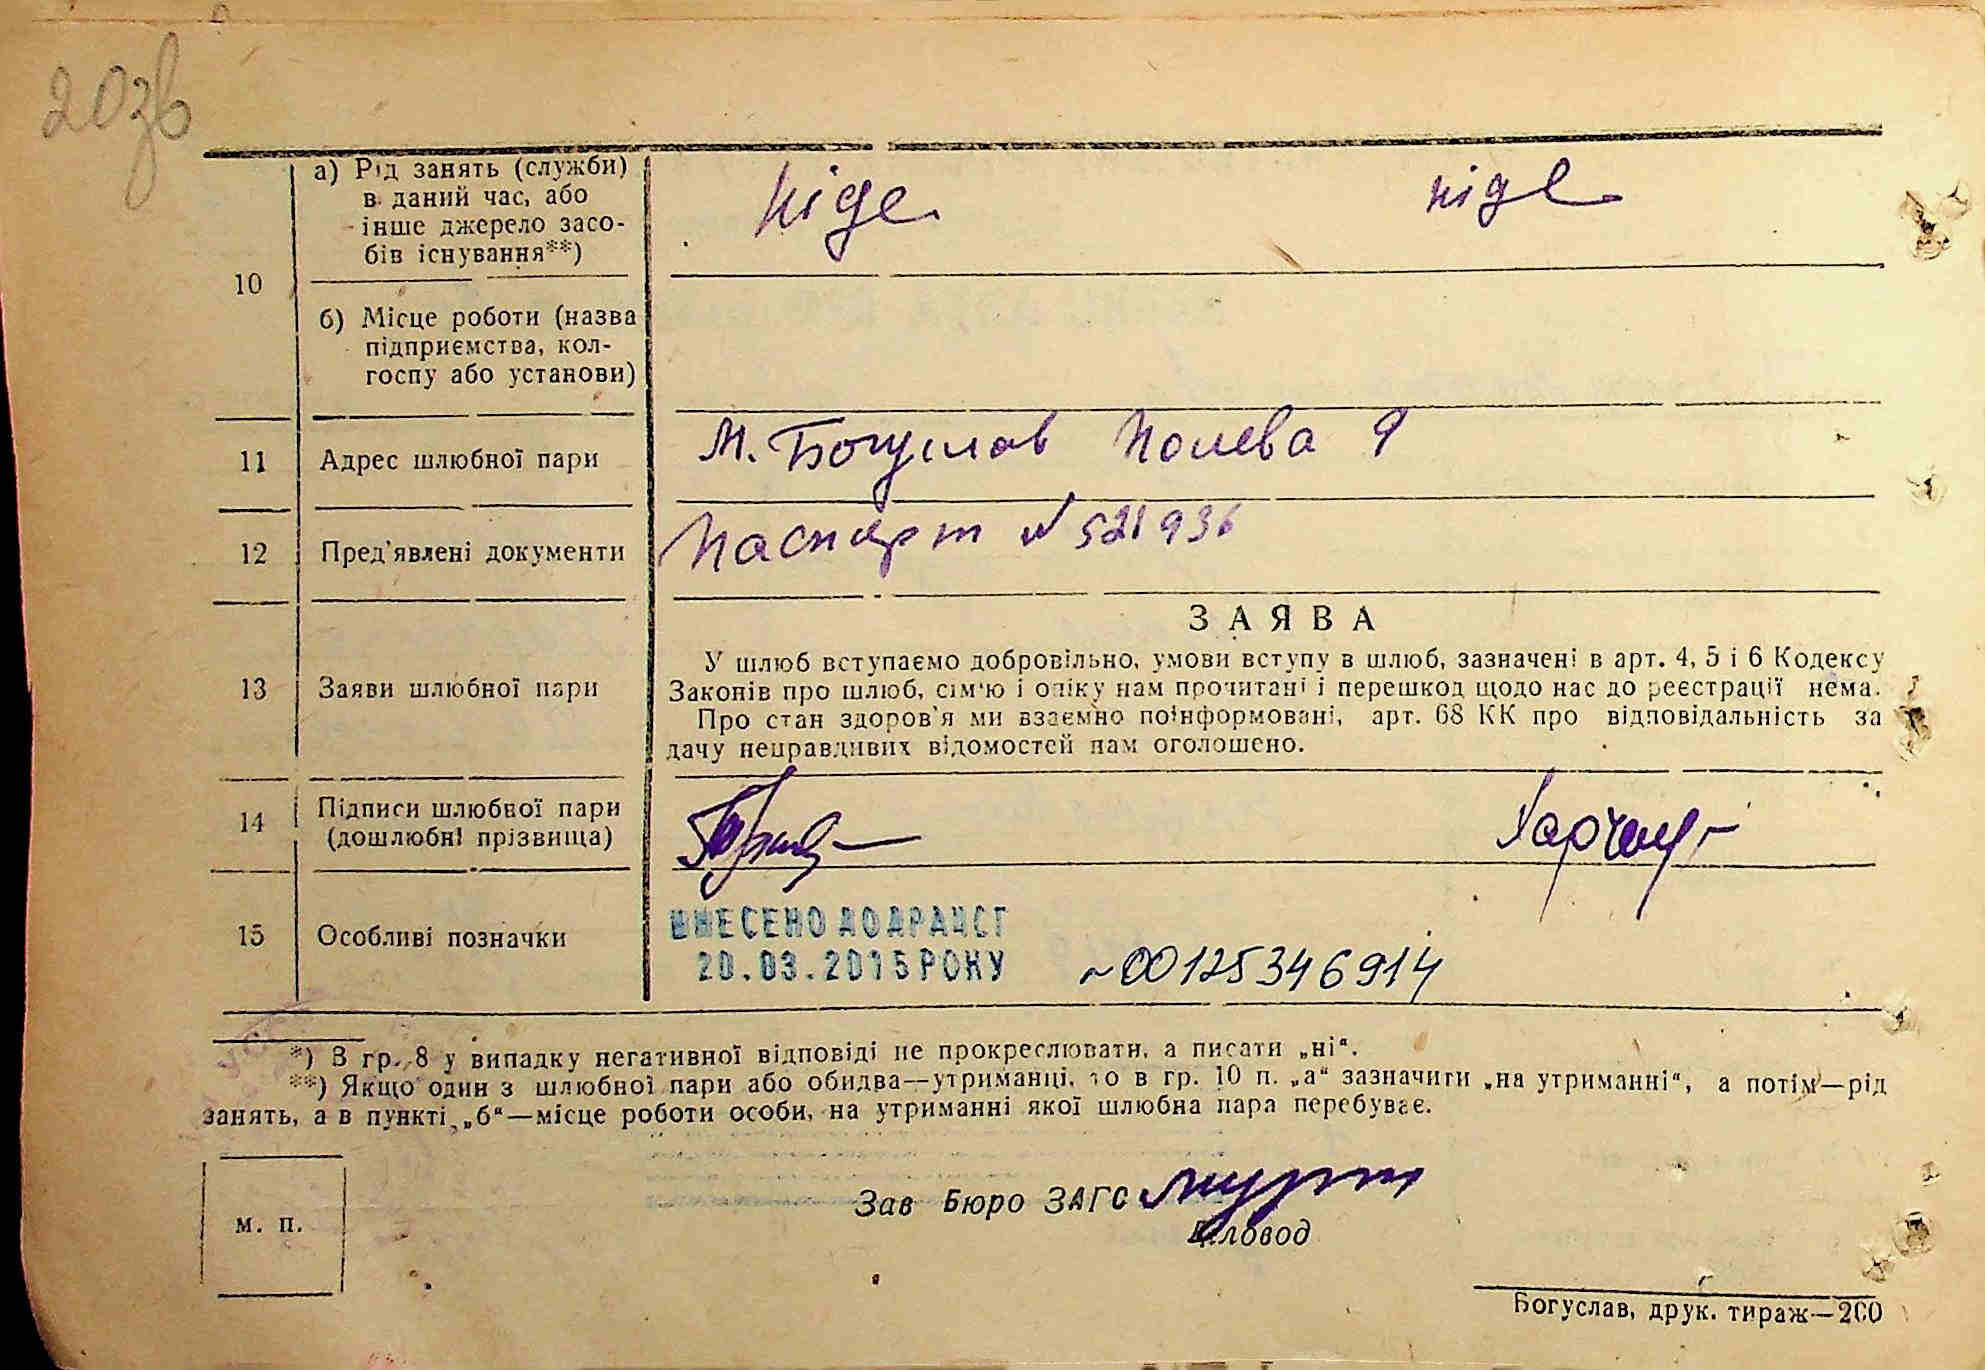 203в
10
а) Рід занять (служби)
в даний час, або
інше джерело засо-
бів існування**)
ніде
ніде
б) Місце роботи (назва
підприємства, кол-
госпу або установи)
11
Адрес шлюбної пари
м. Богуслав Полева 9
12
Пред'явлені документи
Паспорт № 521936
13
Заяви шлюбної пари
ЗАЯВА
У шлюб вступаємо добровільно, умови вступу в шлюб, зазначені в арт. 4, 5 і 6 Кодексу
Законів про шлюб, сім'ю і опіку нам прочитані і перешкод щодо нас до реєстрації нема.
Про стан здоров'я ми взаємно поінформовані, арт. 68 КК про відповідальність за
дачу неправдивих відомостей нам оголошено.
14
Підписи шлюбної пари
(дошлюбні прізвища)
15
Особливі позначки
ВНЕСЕНО ДО ДРАЦСГ
20.03.2015 РОКУ
~00125346914
*) В гр. 8 у випадку негативної відповіді не прокреслювати, а писати „ні“.
**) Якщо один з шлюбної пари або обидва—утриманці, то в гр. 10 п. „а“ зазначити „на утриманні“, а потім—рід
занять, а в пункті „б“—місце роботи особи, на утриманні якої шлюбна пара перебуває.
м. п.
Зав Бюро ЗАГС
Діловод
Богуслав, друк. тираж—200